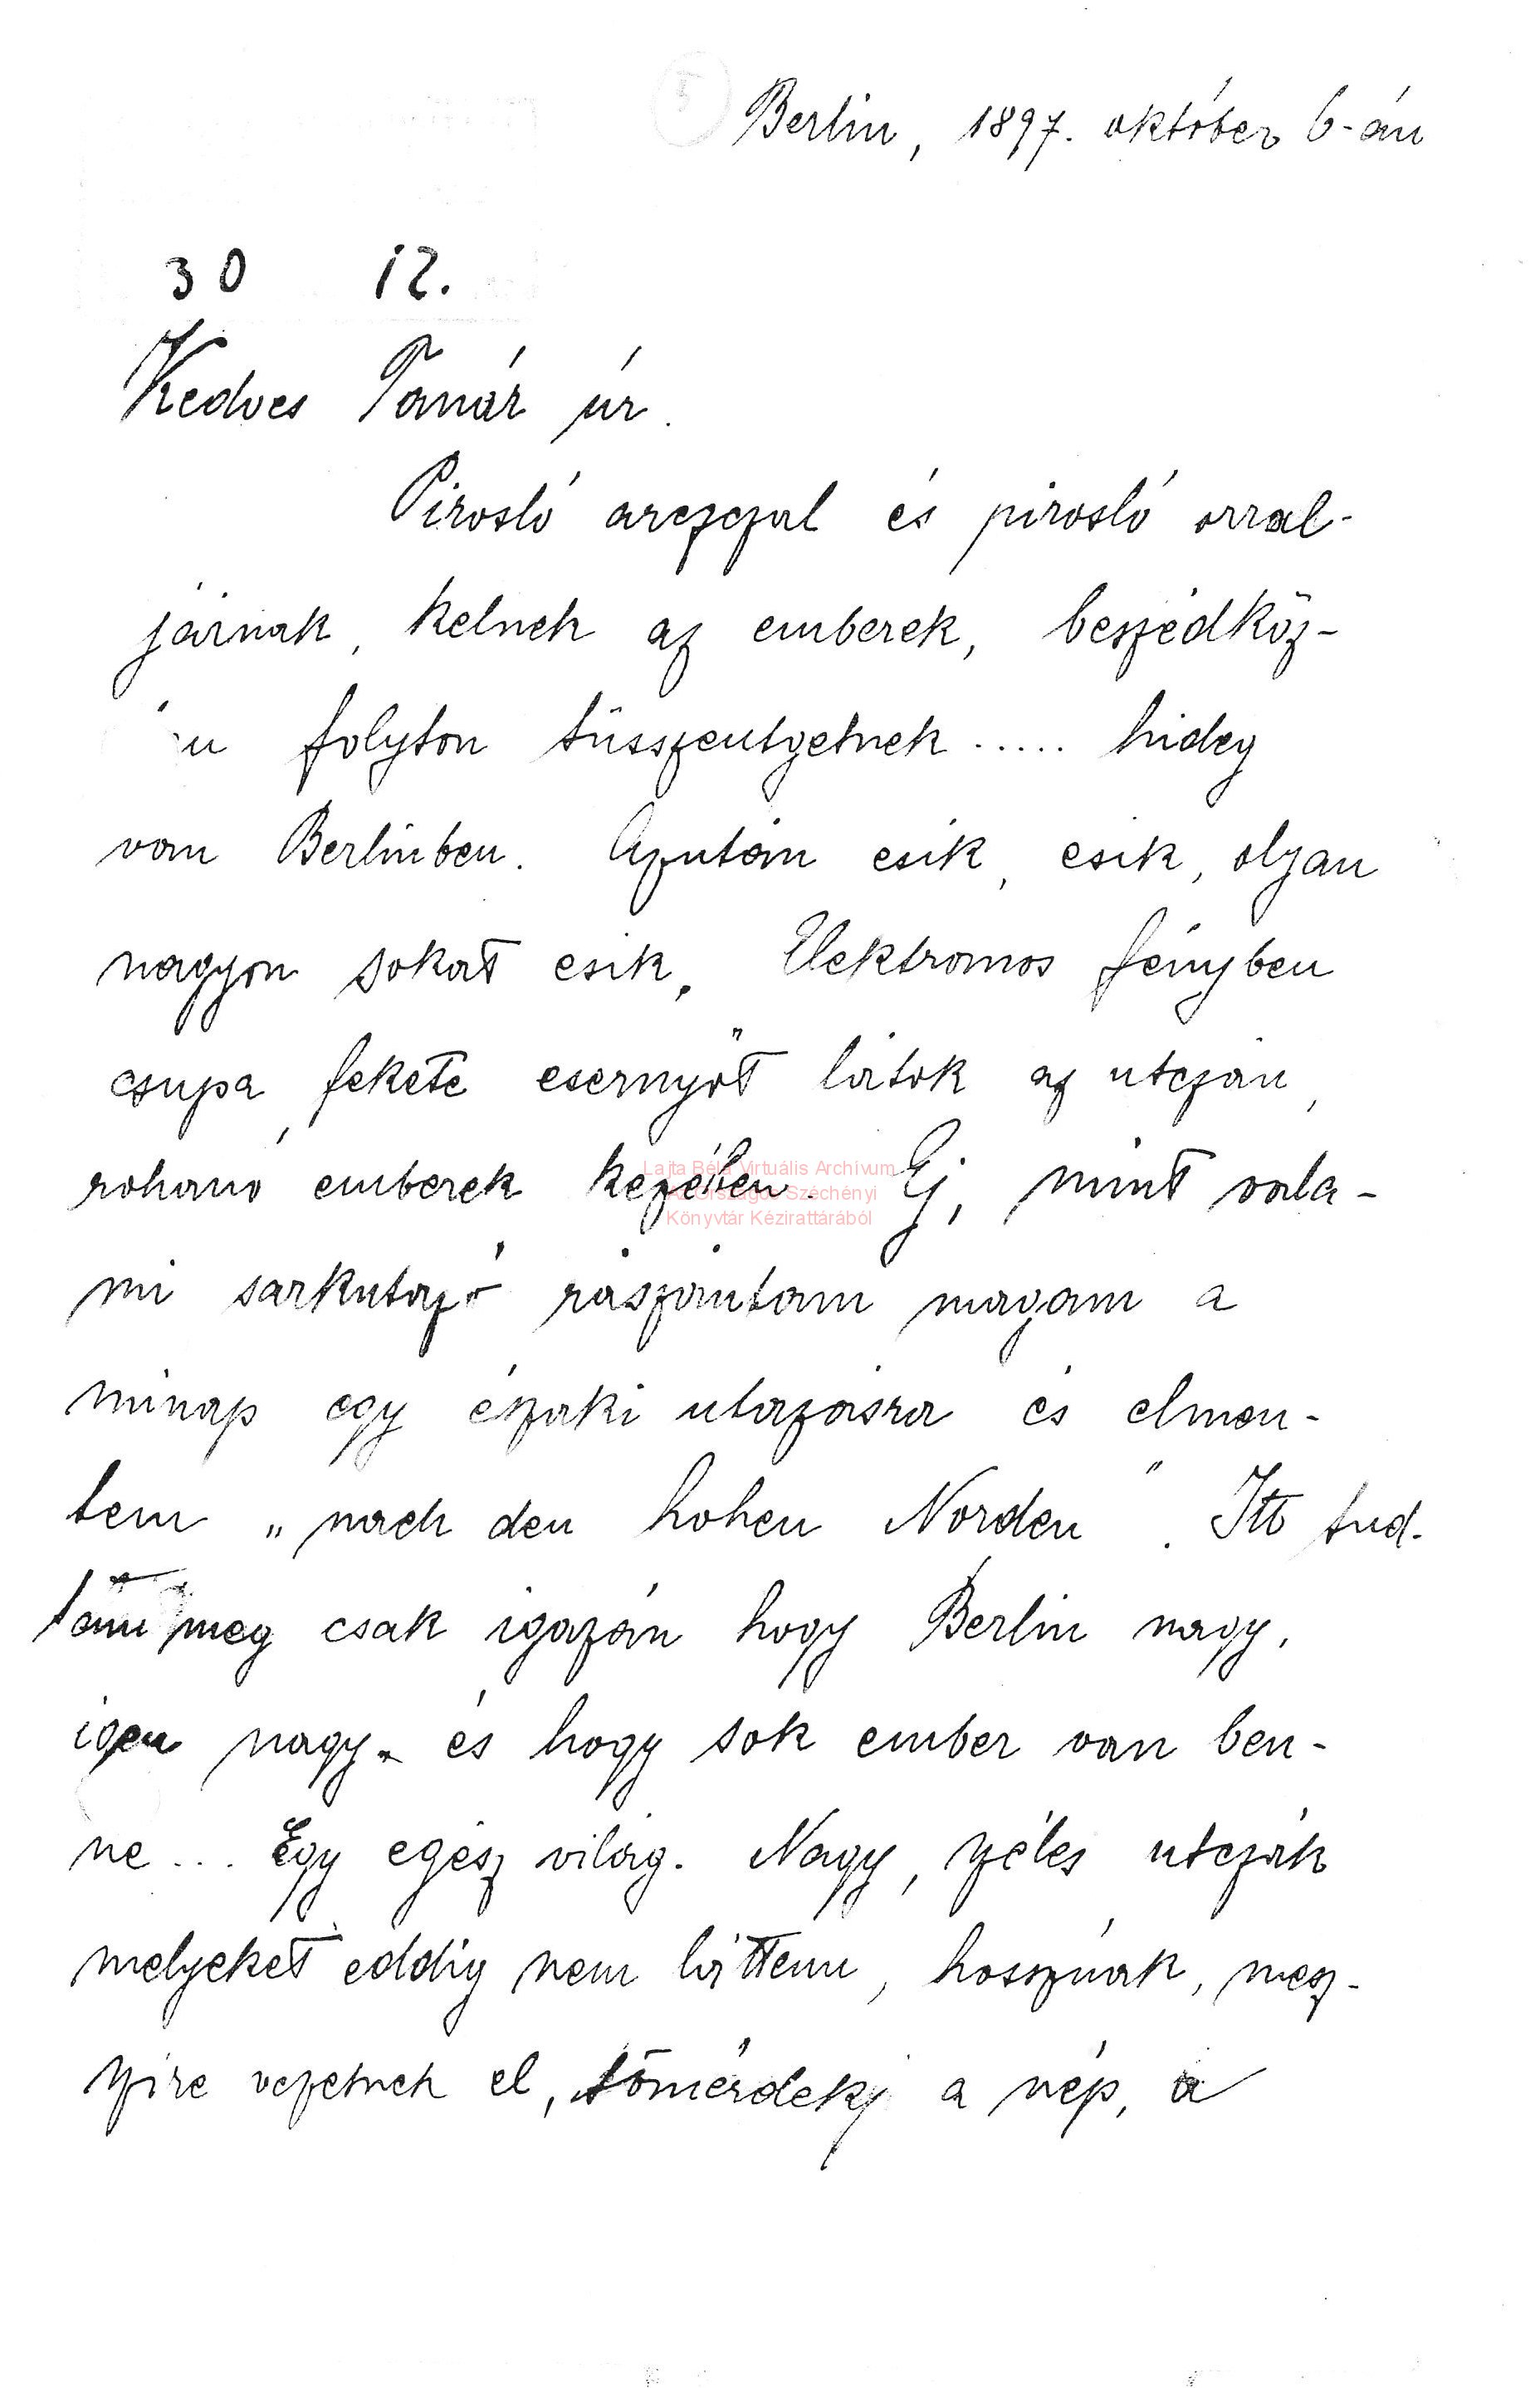 Berlin, 1897. október 6-án
30 12.
Kedves Tanár úr.
Pirosló arczczal és pirosló orral-
járnak, kelnek az emberek, beszédköz-
folyton tüsszentgetnek ..... hideg
van Berlinben. Azután esik, esik, olyan
nagyon sokat esik. Elektromos fényben
csupa fekete esernyőt látok az utczán,
rohanó emberek kezében. Ej, mint vala-
mi sarkutazó rászántam magam a
minap egy északi utazásra és elmen-
tem „nach den hohen Norden". Itt tud-
tam meg csak igazán hogy Berlin nagy,
igen nagy és hogy sok ember van ben-
ne ... Egy egész világ. Nagy, széles utczák
melyeket eddig nem láttam, hosszúak, mesz-
szire vezetnek el, tömérdek a nép, a
Lajta Béla Virtuális Archívum
Az Országos Széchényi
Könyvtár Kézirattárából